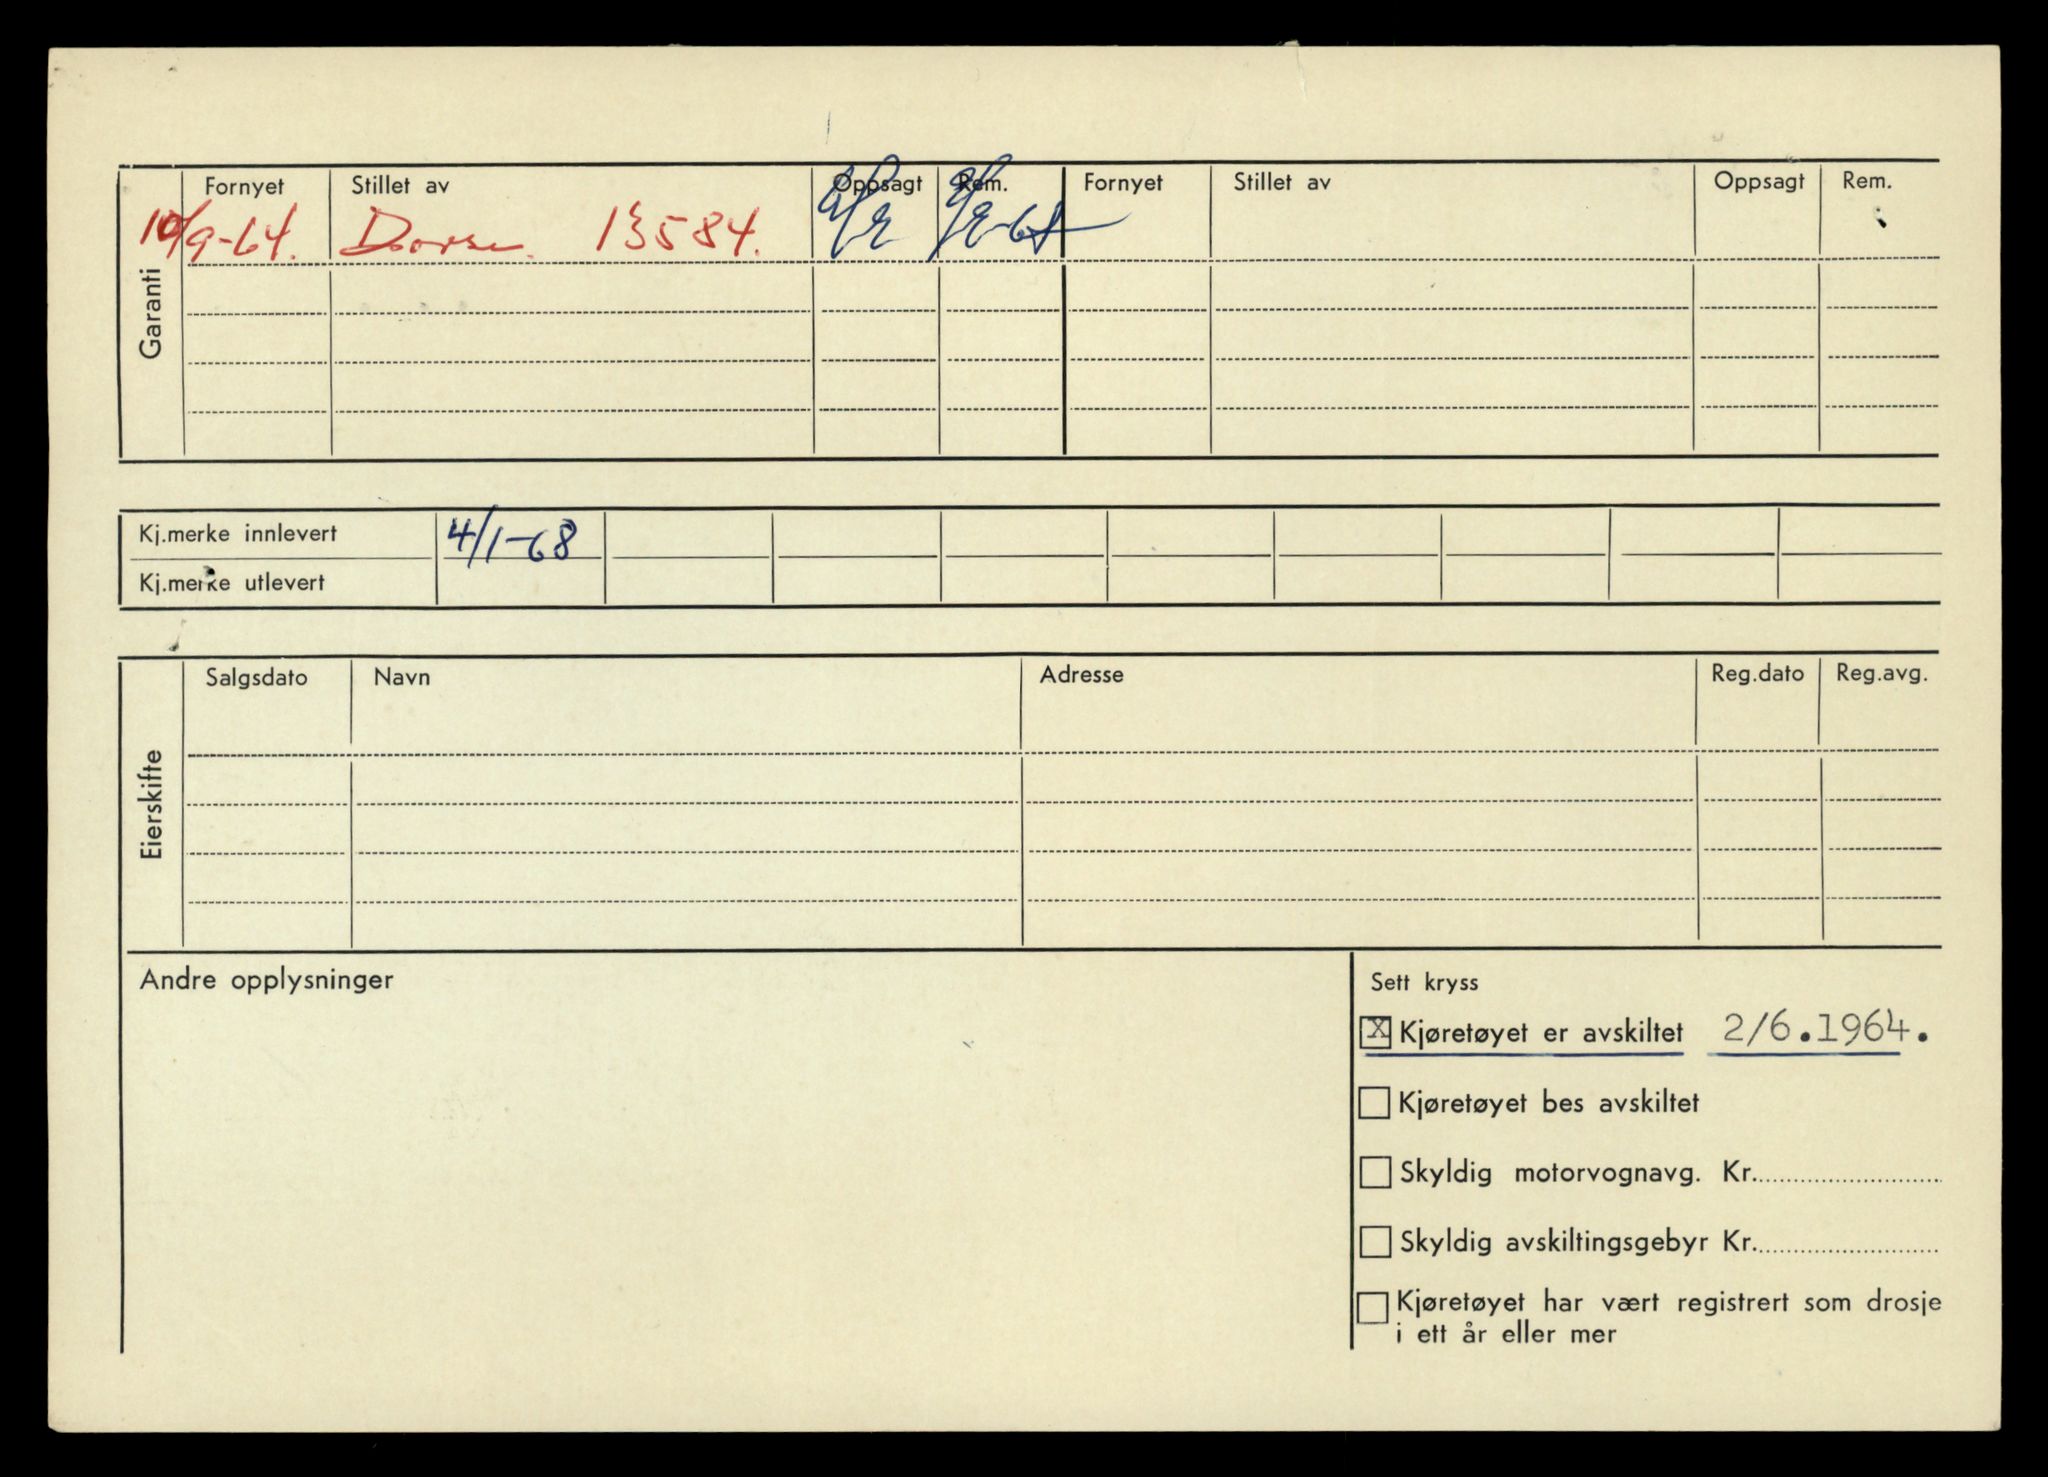 Garanti
Fornyet Stillet av Oppsagt Rem. Fornyet Stillet av Oppsagt Rem.
10/9-64. 13584.
Kj.merke innlevert 4/1-68
Kj.merke utlevert
Eierskifte
Salgsdato Navn Adresse Reg.dato Reg.avg.
Andre opplysninger
Sett kryss
X Kjøretøyet er avskiltet 2/6.1964.
Kjøretøyet bes avskiltet
Skyldig motorvognavg. Kr.
Skyldig avskiltingsgebyr Kr.
Kjøretøyet har vært registrert som drosje
i ett år eller mer